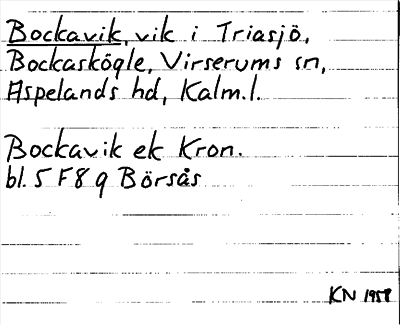 Bockavik, vik i Triasjö,
Bockaskögle, Virserums sn,
Aspelands hd, Kalm.l.
Bockavik ek Kron.
bl. 5 F 8 g Börsås
KN 1958